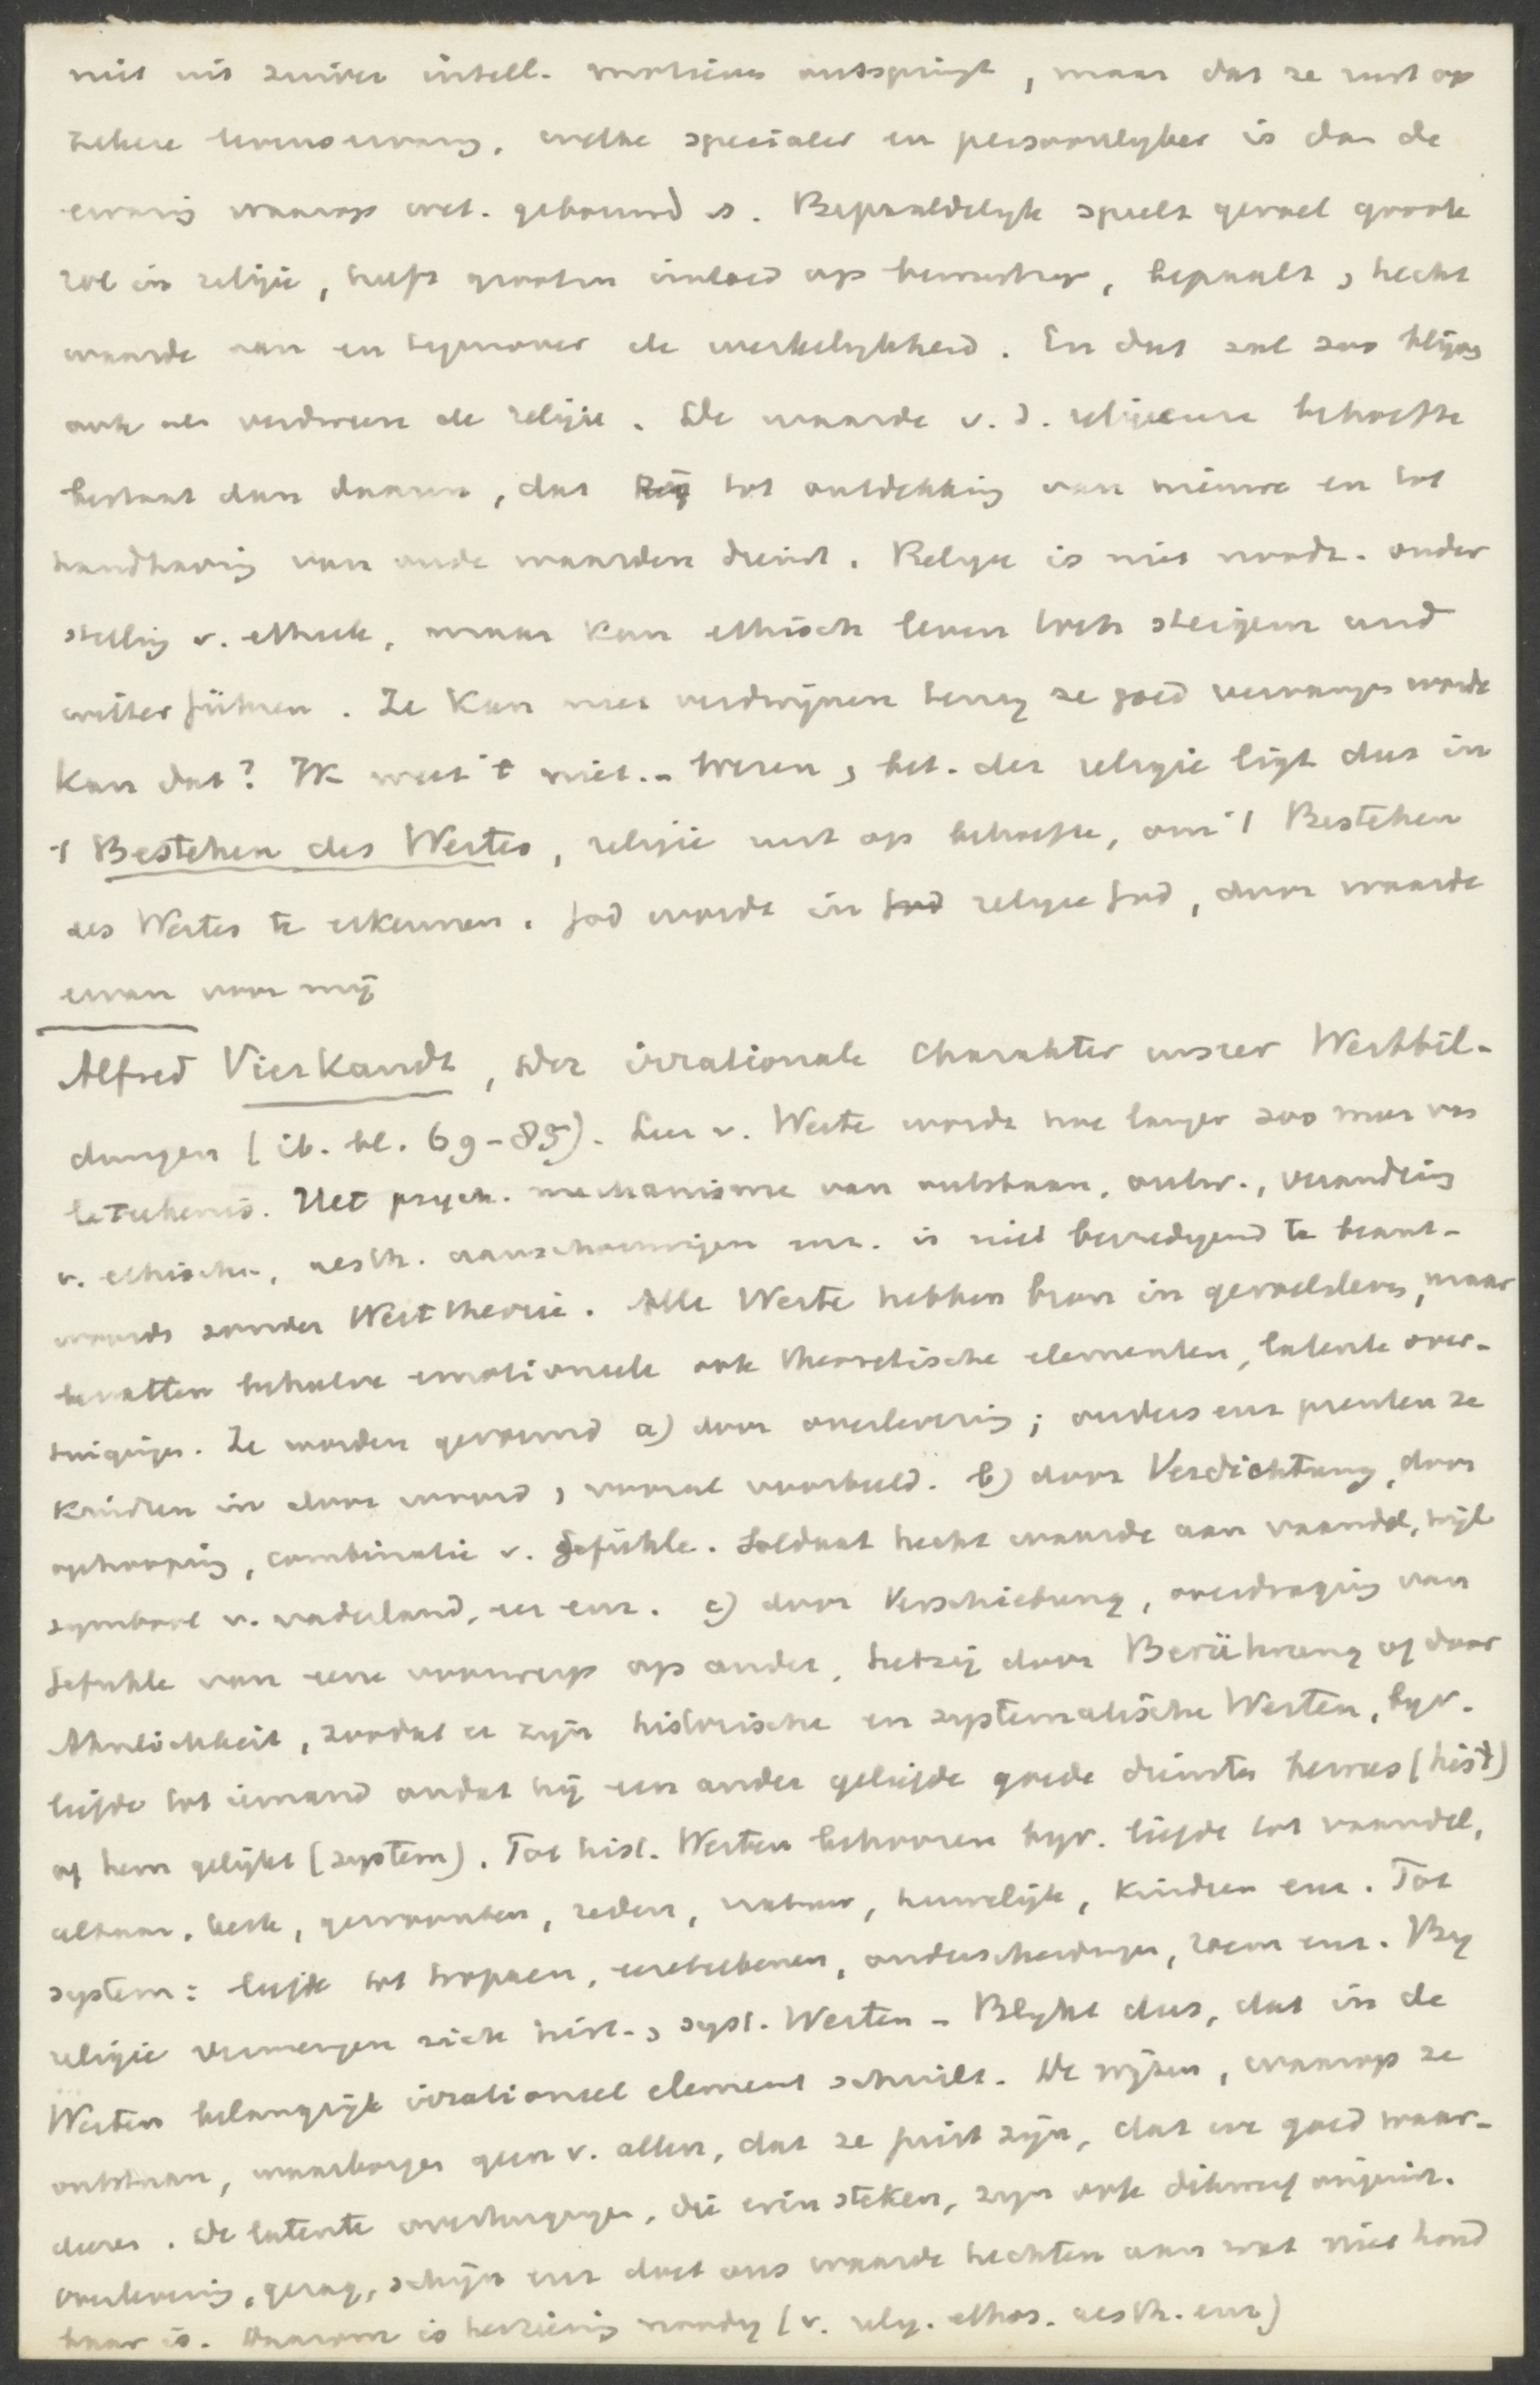 niet uit zuiver intell. motieven ontspringt, maar dat ze rust op
zekere levenservaring, welke specialer en persoonlyker is dan de
ervaring waarop wet. gebouwd is. Bepaaldelyk speelt gevoel groote
rol in religie, heeft grooten invloed op bewustzyn, bepaalt, hecht
waarde aan en tegenover de werkelykheid. En dat zal zoo blijven
ook als verdween de religie. De waarde v. d. religieuse behoefte
bestaat dan daarin, dat zij tot ontdekking van nieuwe en tot
handhaving van oude waarden dient. Religie is niet noodz. onder
stelling v. ethiek, maar kan ethisch leven toch steigern und
weiter führen. Ze kan niet verdwijnen tenzy ze goed vervangen worde
Kan dat? Ik weet 't niet. - Wezen, bet. der religie ligt dus in
't Bestehen des Wertes, religie rust op behoefte, om 't Bestehen
des Wertes te erkennen. God wordt in religie God, door waarde
ervan voor mij
Alfred Vierkandt, Der irrationale Charakter unsrer Wertbil-
dungen (ib. bl. 69-85). Leer v. Werte wordt hoe langer zoo meer van
beteekenis. Het psych. mechanisme van ontstaan, ontw., verandring
v. ethische, aesth. aanschouwingen enz. is niet bevredigend te beant-
woorden zonder Werttheorie. Alle Werte hebben bron in gevoelsleven, maar
bevatten behalve emotioneele ook theoretische elementen, latente over-
tuigingen. Ze worden gevormd a) door overlevering; ouders enz prenten ze
kindren in door woord, vooral voorbeeld. b) door Verdichtung, door
ophooping, combinatie v. Gefühle. Soldaat hecht waarde aan vaandel, wijl
symbool v. vaderland, eer enz. c) door Verschiebung, overdraging van
Gefühle van eene voorwerp op ander, hetzij door Berührung of door
Ähnlichkeit, zoodat er zijn historische en systematische Werten, byv.
liefde tot iemand omdat hij een ander geliefde goede diensten bewees (hist)
of hem gelijkt (system). Tot hist. Werten behooren byv. liefde tot vaandel,
altaar, kerk, gewoonten, zeden, natuur, huwelijk, kindren enz. Tot
system: liefde tot tropaeen, eereteekenen, onderscheidingen, roem enz. By
religie vermengen zich hist., syst. Werten. - Blykt dus, dat in de
Werten belangrijk irrationeel element schuilt. De wijzen, waarop ze
ontstaan, waarborgen geen v. allen, dat ze juist zijn, dat we goed waar-
deeren. De latente overtuigingen, die erin steken, zijn ook dikwerf onjuist.
Overlevering, gezag, schijn enz doet ons waarde hechten aan wat niet houd
baar is. Daarom is herziening noodig (v. relig. ethos. aesth. enz)